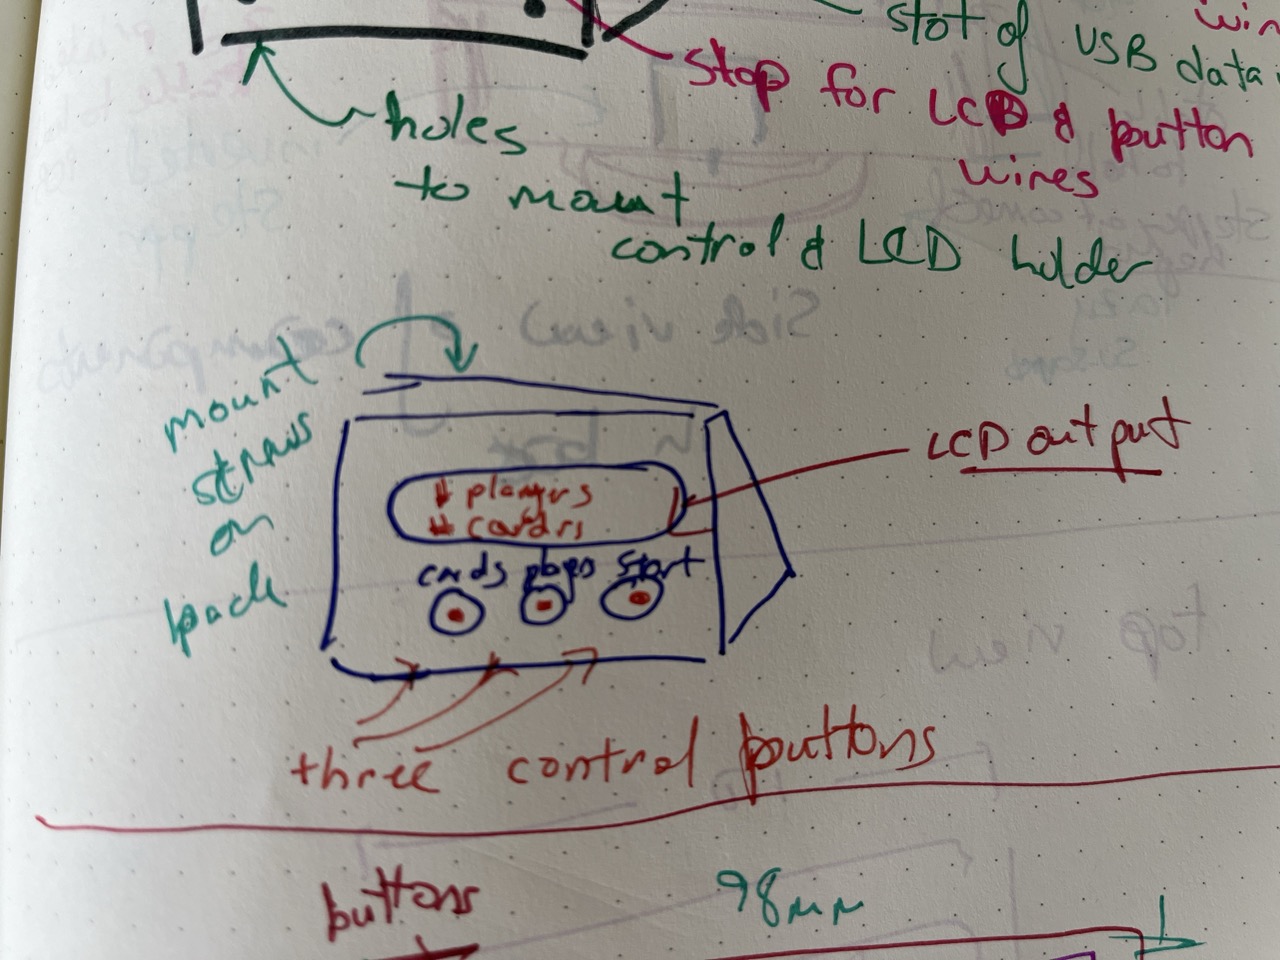 stot of USB data
win
stop for LCD & button
wires
holes
to mount
control & LCD holder
mount
straps
on
back
# players
# cards
cards plays start
LCD output
three control buttons
buttons
98mm